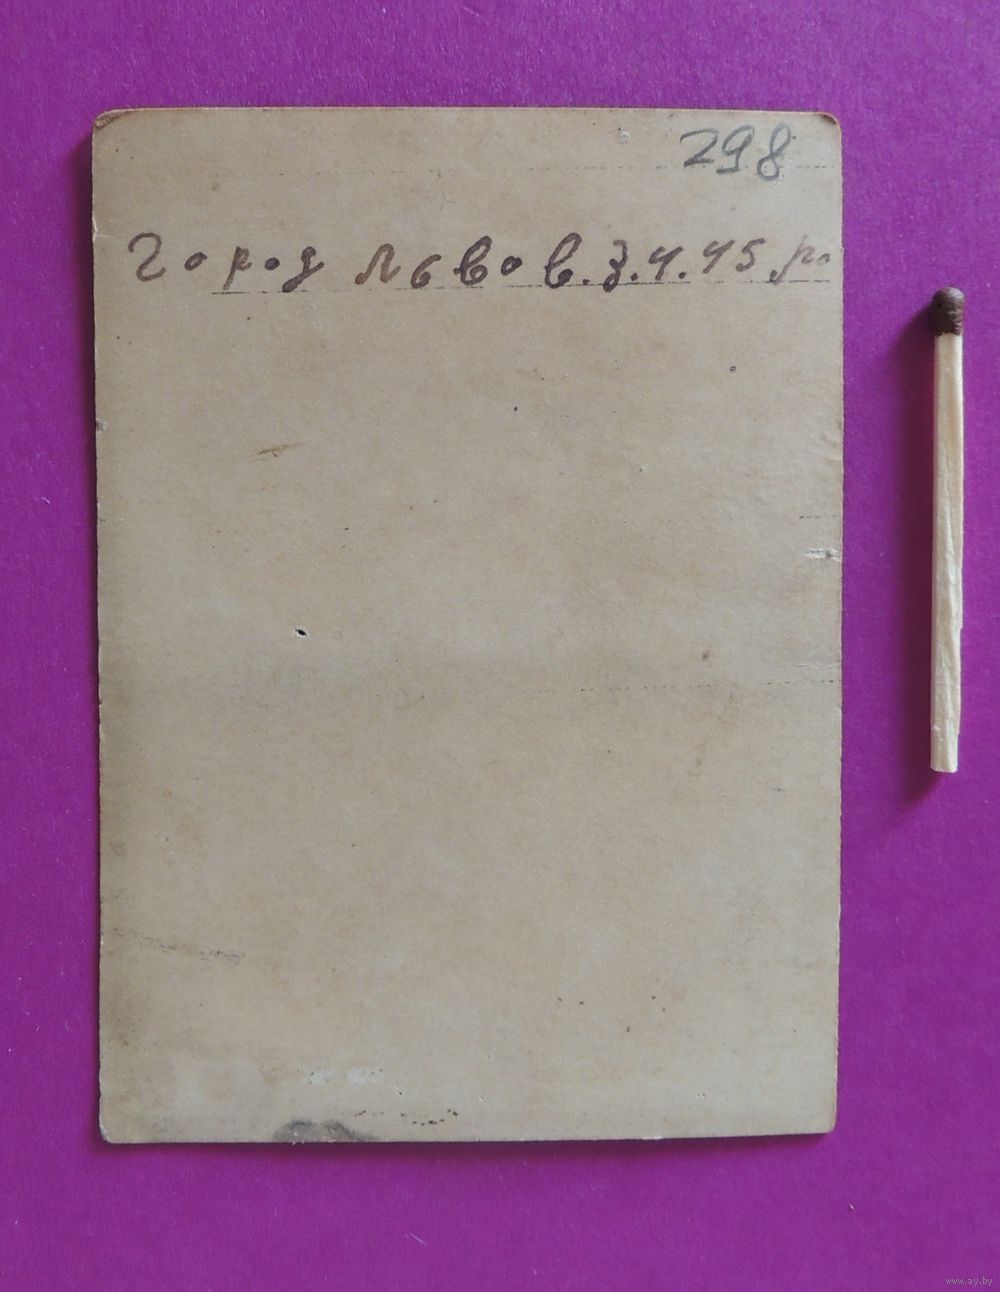 298
Город Львов. 3.4.45. ро
www.ay.by